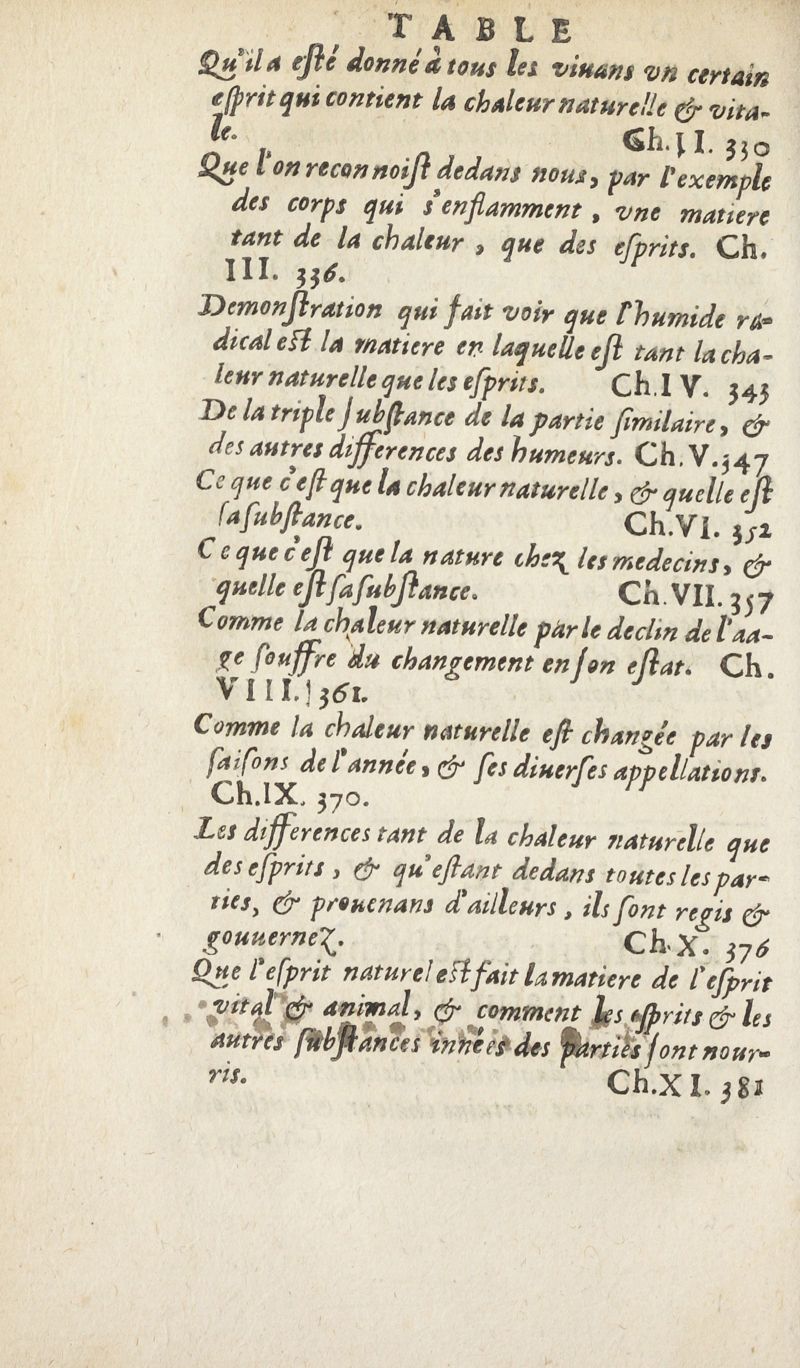 TABLE
Qu'il a esté donné à tous les viuans vn certain
esprit qui contient la chaleur naturelle & vita-
le. Ch. II. 330
Que l'on reconnoist dedans nous, par l'exemple
des corps qui s'enflamment, vne matiere
tant de la chaleur, que des esprits. Ch.
III. 336.
Demonstration qui fait voir que l'humide ra-
dical est la matiere en laquelle est tant la cha-
leur naturelle que les esprits. Ch. IV. 343
De la triple substance de la partie similaire, &
des autres differences des humeurs. Ch. V. 347
Ce que c'est que la chaleur naturelle, & quelle est
sa substance. Ch. VI. 352
Ce que c'est que la nature chez les medecins, &
quelle est sa substance. Ch. VII. 357
Comme la chaleur naturelle par le declin de l'aa-
ge souffre du changement en son estat. Ch.
VIII. 361.
Comme la chaleur naturelle est changée par les
saisons de l'année, & ses diuerses appellations.
Ch. IX. 370.
Les differences tant de la chaleur naturelle que
des esprits, & qu'estant dedans toutes les par-
ties, & prouenans d'ailleurs, ils sont regis &
gouuernez. Ch. X. 376
Que l'esprit naturel est fait la matiere de l'esprit
vital & animal, & comment les esprits & les
autres substances innées des parties sont nour-
ris. Ch. XI. 381